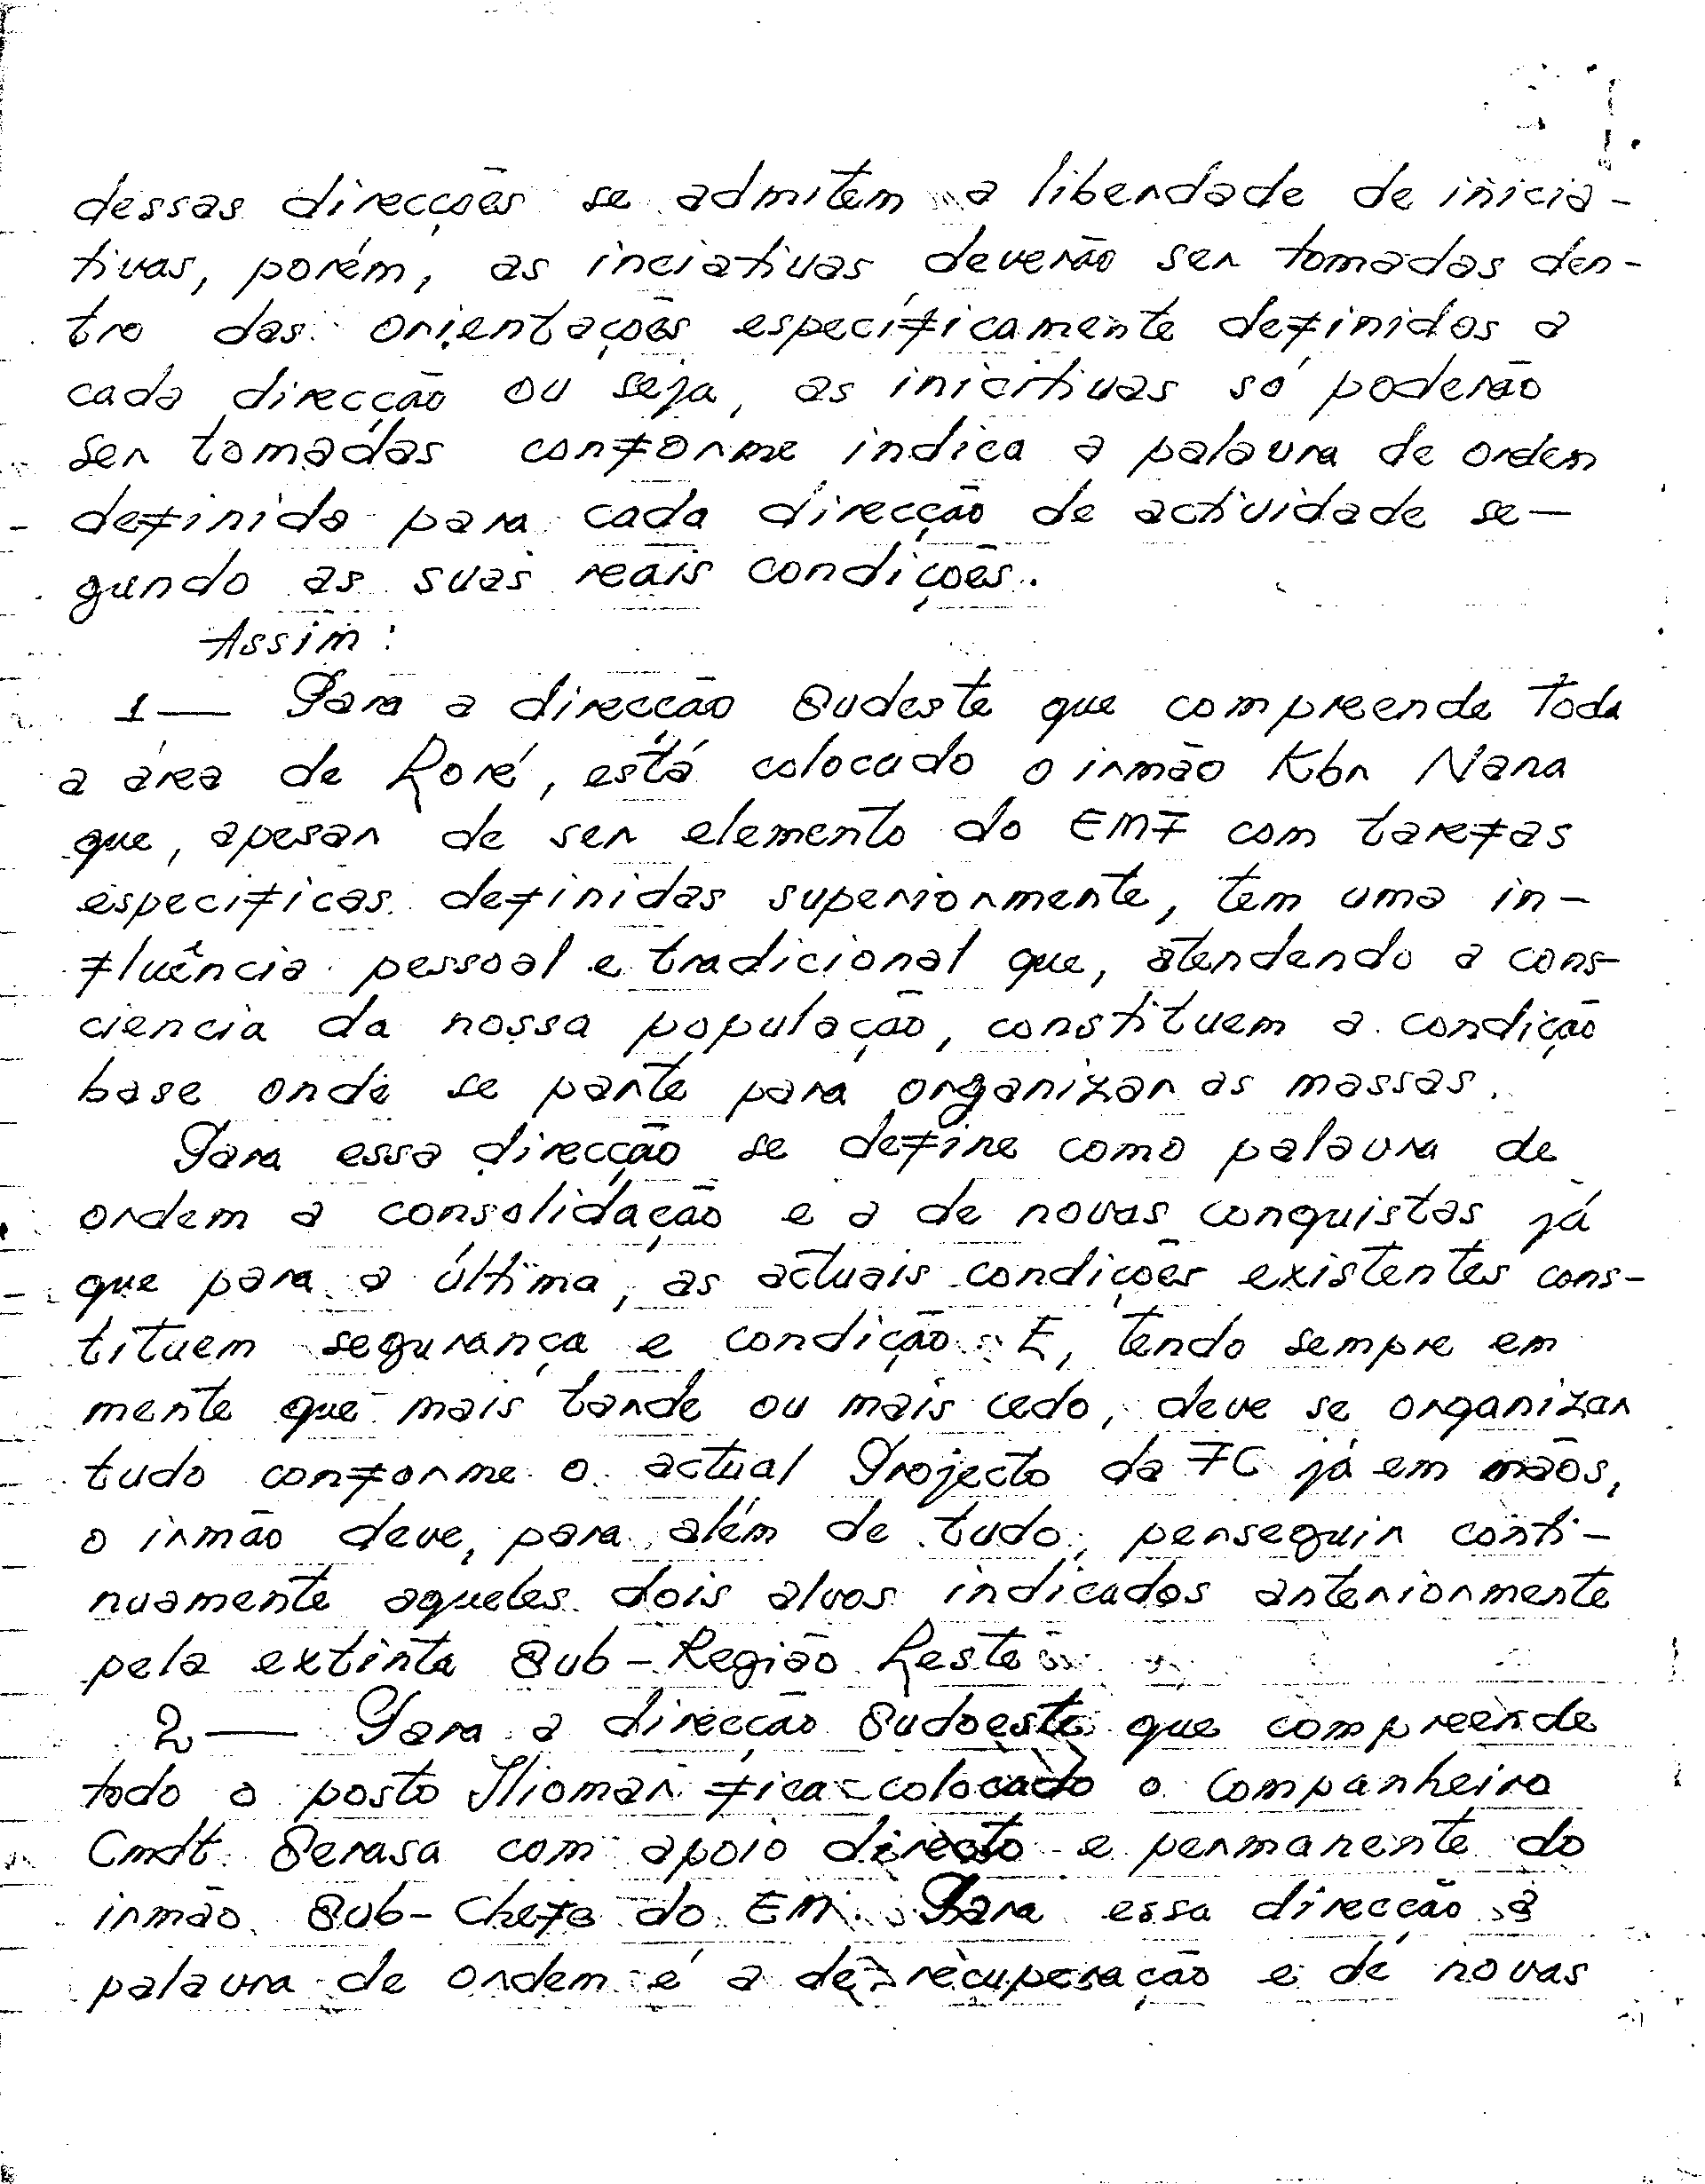 dessas direcções se admitem a liberdade de inicia-
tivas, porém, as inciativas deverão ser tomadas den-
tro das orientações específicamente definidos a
cada direcção ou seja, as inicitivas só poderão
ser tomadas conforme indica a palavra de ordem
definida para cada direcção de actividade se-
gundo as suas reais condições.
Assim:
1 — Para a direcção Sudeste que compreende toda
a área de Loré, está colocado o irmão Kbr Nara
que, apesar de ser elemento do EMF com tarefas
especificas definidas superiormente, tem uma in-
fluência pessoal e tradicional que, atendendo a cons-
ciencia da nossa população, constituem a condição
base onde se parte para organizar as massas.
Para essa direcção se define como palavra de
ordem a consolidação e a de novas conquistas já
que para a última, as actuais condições existentes cons-
tituem segurança e condição. E, tendo sempre em
mente que mais tarde ou mais cedo, deve se organizar
tudo conforme o actual Projecto da FC já em mãos,
o irmão deve, para além de tudo, perseguir conti-
nuamente aqueles dois alvos indicados anteriormente
pela extinta Sub-Região Leste.
2 — Para a direcção Sudoeste que compreende
todo o posto Iliomar fica colocado o Companheiro
Cmdt. Serasa com apoio directo e permanente do
irmão Sub-Chefe do EM. Para essa direcção a
palavra de ordem é a de recuperação e de novas